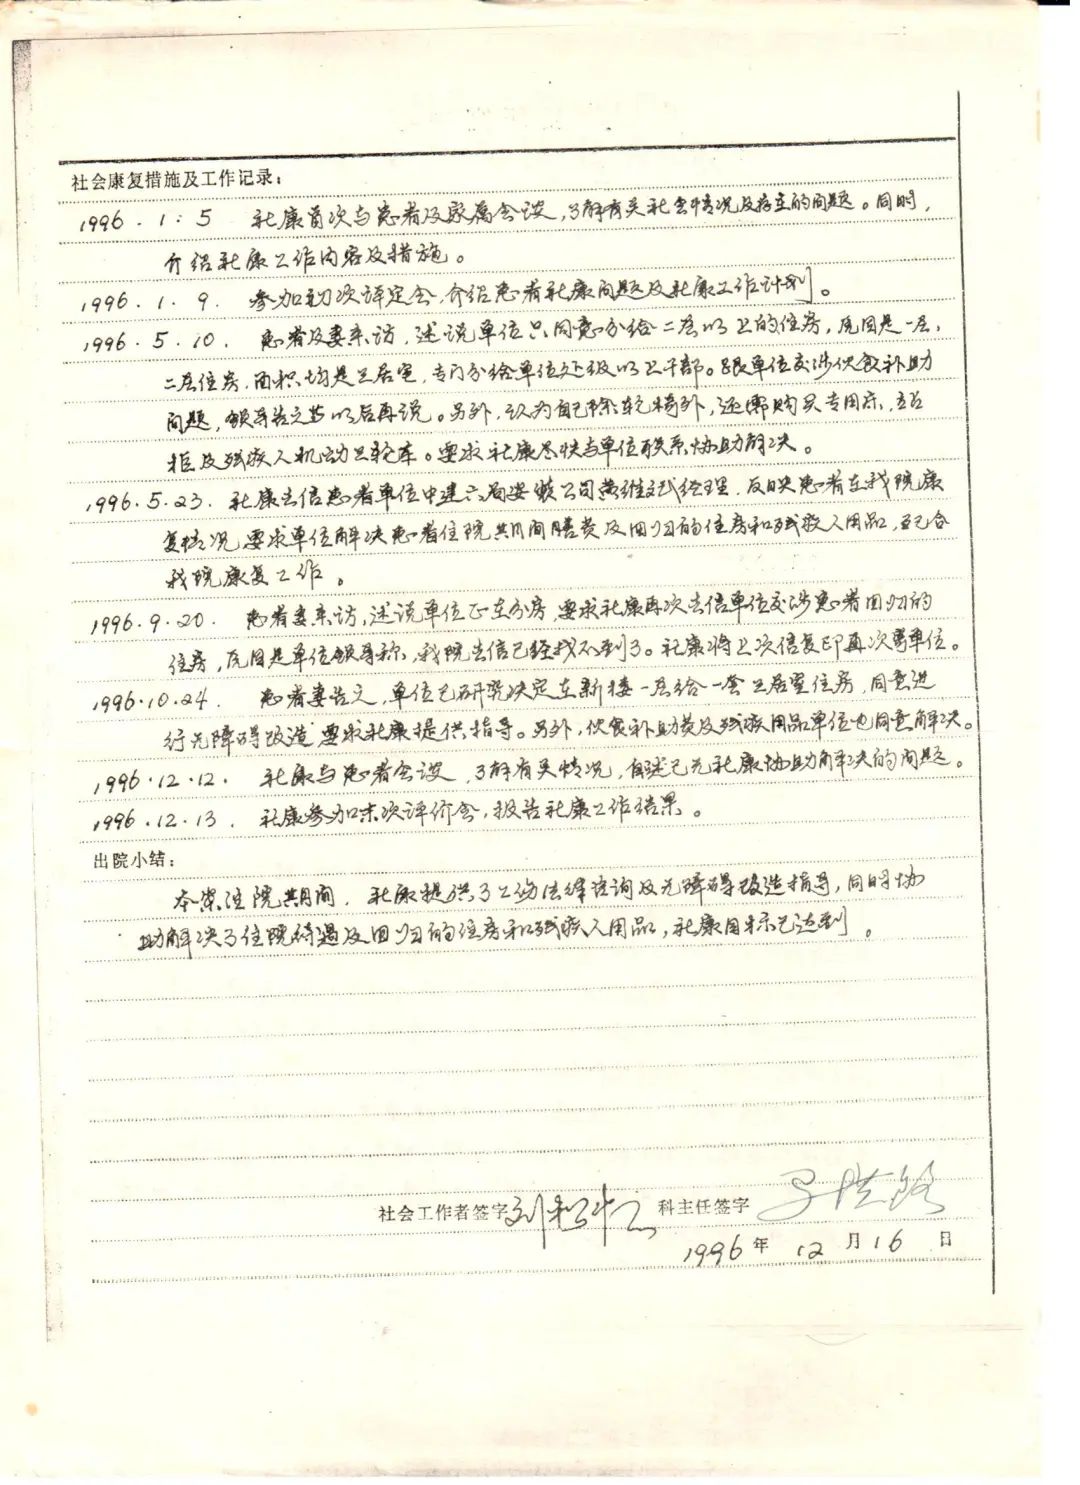 社会康复措施及工作记录：
1996.1.5 社康首次与患者及家属会谈，了解有关社会情况及存在的问题。同时，
介绍社康工作内容及措施。
1996.1.9. 参加初次评定会，介绍患者社康问题及社康工作计划。
1996.5.10. 患者及妻来访，述说单位只同意分给二层以上的住房，原因是一层、
二层住房，面积均是三居室，专门分给单位处级以上干部。跟单位交涉伙食补助
问题，领导告之等以后再说。另外，认为自己除轮椅外，还需购买专用床，
柜及残疾人机动三轮车。要求社康尽快与单位联系协助解决。
1996.5.23. 社康去信患者单位中建六局安装公司黄维文代经理，反映患者在我院康
复情况，要求单位解决患者住院期间膳费及回归的住房和残疾人用品，配合
我院康复工作。
1996.9.20. 患者妻来访，述说单位正在分房，要求社康再次去信单位交涉患者回归的
住房，原因是单位领导称，我院去信已经找不到了。社康将上次信复印再次寄单位。
1996.10.24. 患者妻告之，单位已研究决定在新楼一层给一套三居室住房，同意进
行无障碍改造，要求社康提供指导。另外，伙食补助费及残疾用品单位也同意解决。
1996.12.12. 社康与患者会谈，了解有关情况，自述已无社康协助解决的问题。
1996.12.13. 社康参加末次评价会，报告社康工作结果。
出院小结：
本案住院期间，社康提供了工伤法律咨询及无障碍改造指导，同时协
助解决了住院待遇及回归的住房和残疾人用品，社康目标已达到。
社会工作者签字 刘 科主任签字
1996年12月16日